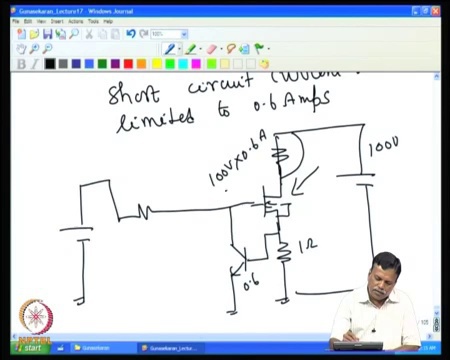 Gunasekaran_Lecture17 - Windows Journal
File Edit View Insert Actions Tools Help
Short circuit
limited to 0.6 Amps
100V×0.6A
100V
1Ω
0.6
start
Gunasekaran
Gunasekaran_Lectu...